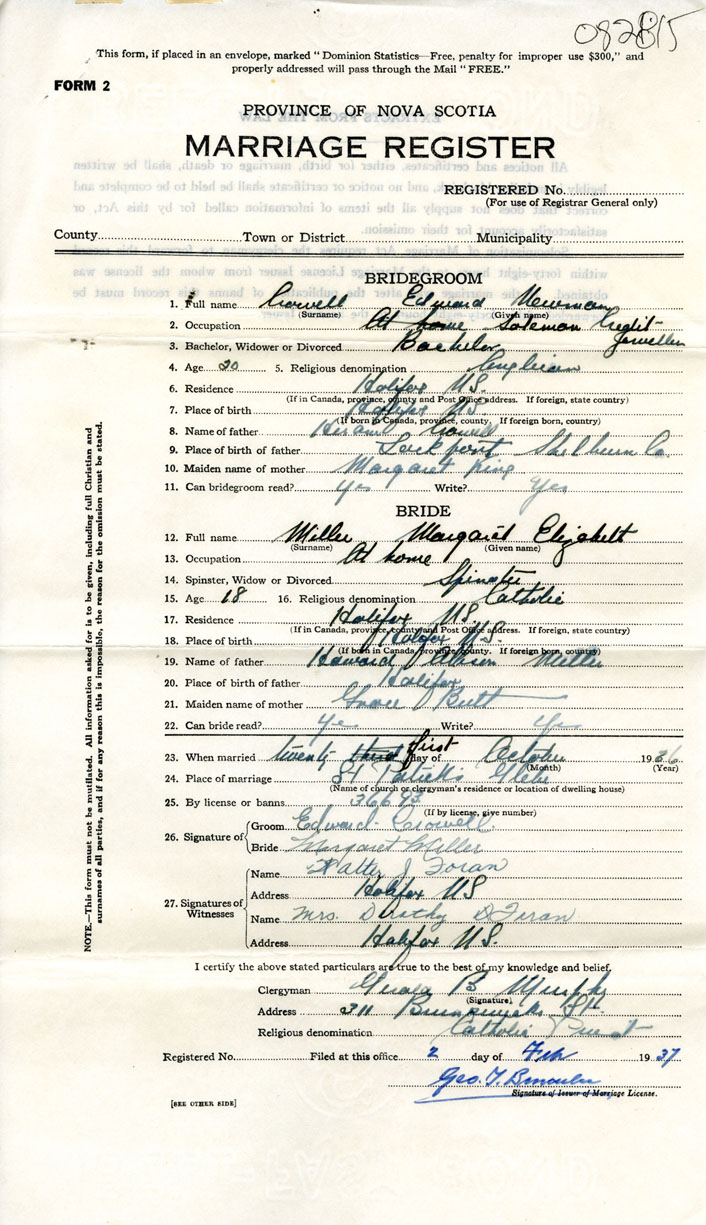 082815
This form, if placed in an envelope, marked "Dominion Statistics—Free, penalty for improper use $300," and
properly addressed will pass through the Mail "FREE."
FORM 2
PROVINCE OF NOVA SCOTIA
MARRIAGE REGISTER
REGISTERED No.
(For use of Registrar General only)
County Town or District Municipality
BRIDEGROOM
1. Full name Crowell Edward Newman
(Surname) (Given name)
2. Occupation At home Soleman Credit Jeweller
3. Bachelor, Widower or Divorced Bachelor
4. Age 20 5. Religious denomination Anglican
6. Residence Halifax N.S.
(If in Canada, province, county and Post Office address. If foreign, state country)
7. Place of birth Halifax N.S.
(If born in Canada, province, county. If foreign born, country)
8. Name of father Crowell
9. Place of birth of father Lockport Shelburn Co.
10. Maiden name of mother Margaret King
11. Can bridegroom read? yes Write? Yes
BRIDE
12. Full name Miller Margaret Elizabeth
(Surname) (Given name)
13. Occupation At home
14. Spinster, Widow or Divorced Spinster
15. Age 18 16. Religious denomination Catholic
17. Residence Halifax N.S.
(If in Canada, province, county and Post Office address. If foreign, state country)
18. Place of birth Halifax N.S.
(If born in Canada, province, county. If foreign born, country)
19. Name of father Howard Miller
20. Place of birth of father Halifax
21. Maiden name of mother Grace Butt
22. Can bride read? Yes Write? Yes
23. When married twenty third first day of October 1936
(Month) (Year)
24. Place of marriage St Patrick's Glebe
(Name of church or clergyman's residence or location of dwelling house)
25. By license or banns 36693
(If by license, give number)
26. Signature of Groom Edward Crowell
Bride Margaret Miller
27. Signatures of Witnesses Name Walter J Foran
Address Halifax NS
Name Mrs. Dorothy D Foran
Address Halifax N.S.
I certify the above stated particulars are true to the best of my knowledge and belief,
Clergyman Gerald B Murphy
(Signature)
Address 311 Brunswick St.
Religious denomination Catholic Priest
Registered No. Filed at this office 2 day of Feb 1937
Geo. T.
Signature of Issuer of Marriage License.
[SEE OTHER SIDE]
NOTE.—This form must not be mutilated. All information asked for is to be given, including full Christian and
surnames of all parties, and if for any reason this is impossible, the reason for the omission must be stated.